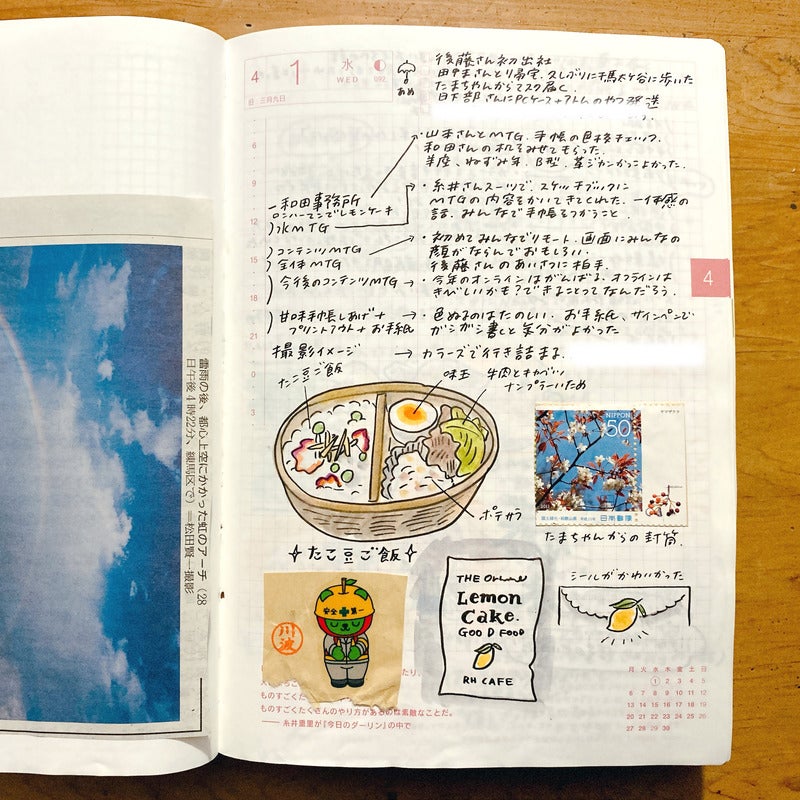 雷雨の後、都心上空にかかった虹のアーチ（28
日午後4時22分、練馬区で）＝松田賢一撮影
4 1 水
WED. 092
日 三月九日
あめ
後藤さん初出社
田中まさんとり高定.久しぶりに千駄ヶ谷に歩いた
たまちゃんからマスク届く.
日下部さんにPCケース+アトムのやつ発送
・山本さんとMTG.手帳の色校チェック.
和田さんの机をみせてもらった.
羊座、ねずみ年、B型.革ジャンかっこよかった.
一和田事務所
ロンハーマンでレモンケーキ
)水MTG
・糸井さんスーツで.スケッチブックに
MTGの内容をかいてきてくれた.一体感の
話.みんなで手帳をつかうこと.
)コンテンツMTG
)全体MTG
・初めてみんなでリモート.画面にみんなの
顔がならんでおもしろい.
後藤さんのあいさつに拍手.
)今後のコンテンツMTG
・今年のオンラインはがんばる.オフラインは
きびしいかも?できることってなんだろう.
)甘味手帳しあげ+
プリントアウト+お手紙
・色ぬるのはたのしい.お手紙、サインペンで
ガシガシ書くと気分がよかった
撮影イメージ → カラーズで行き詰まる.
6
9
12
15
18
21
0
3
4
たこ豆ご飯
味玉
牛肉とキャベツ
ナンプラーいため
ポテサラ
たこ豆ご飯
NIPPON
50
ヤマザクラ
日本郵便
たまちゃんからの封筒.
安全+第一
川波
THE
Lemon
Cake.
GOOD FOOD
RH CAFE
シールがかわいかった
たり、
ものすごくた
ものすごくたくさんのやり方があるのは素敵なことだ。
―― 糸井重里が『今日のダーリン』の中で
月 火 水 木 金 土 日
1 2 3 4 5
6 7 8 9 10 11 12
13 14 15 16 17 18 19
20 21 22 23 24 25 26
27 28 29 30